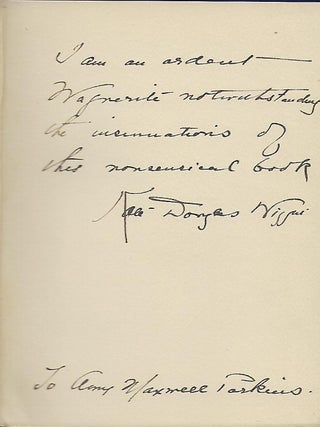 I am an ardent
Wagnerite notwithstanding
the insinuations of
this nonsensical book
Kate Douglas Wiggin
To Amy Maxwell Parkins.